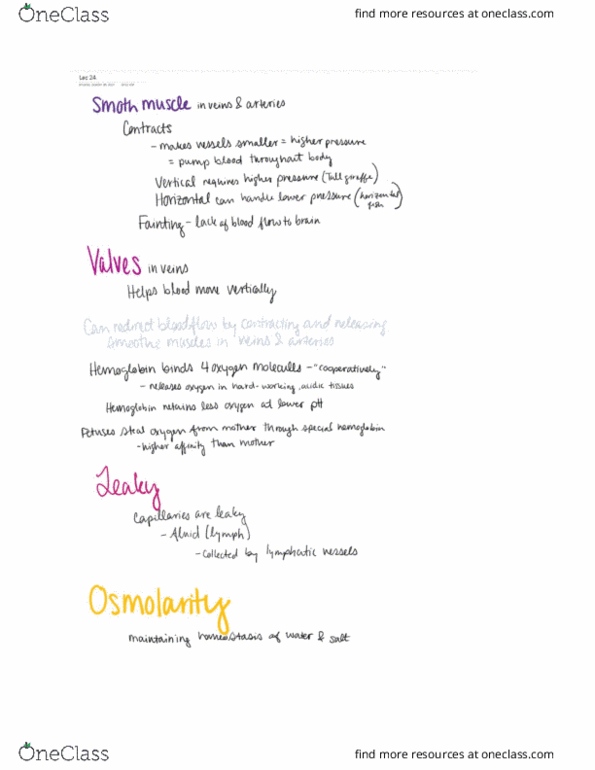 OneClass
find more resources at oneclass.com
Lec 24
Smoth muscle in veins & arteries
Contracts
- makes vessels smaller = higher pressure
= pump blood throughout body
Vertical requires higher pressure (Tall giraffe)
Horizontal can handle lower pressure (horizontal fish)
Fainting - lack of blood flow to brain
Valves in veins
Helps blood move vertically
Can redirect bloodflow by contracting and releasing
smoothe muscles in veins & arteries
Hemoglobin binds 4 oxygen molecules - "cooperatively"
- releases oxygen in hard-working, acidic tissues
Hemoglobin retains less oxygen at lower pH
Fetuses steal oxygen from mother through special hemoglobin
- higher affinity than mother
Leaky
Capillaries are leaky
- fluid (lymph)
- collected by lymphatic vessels
Osmolarity
maintaining homeostasis of water & salt
OneClass
find more resources at oneclass.com